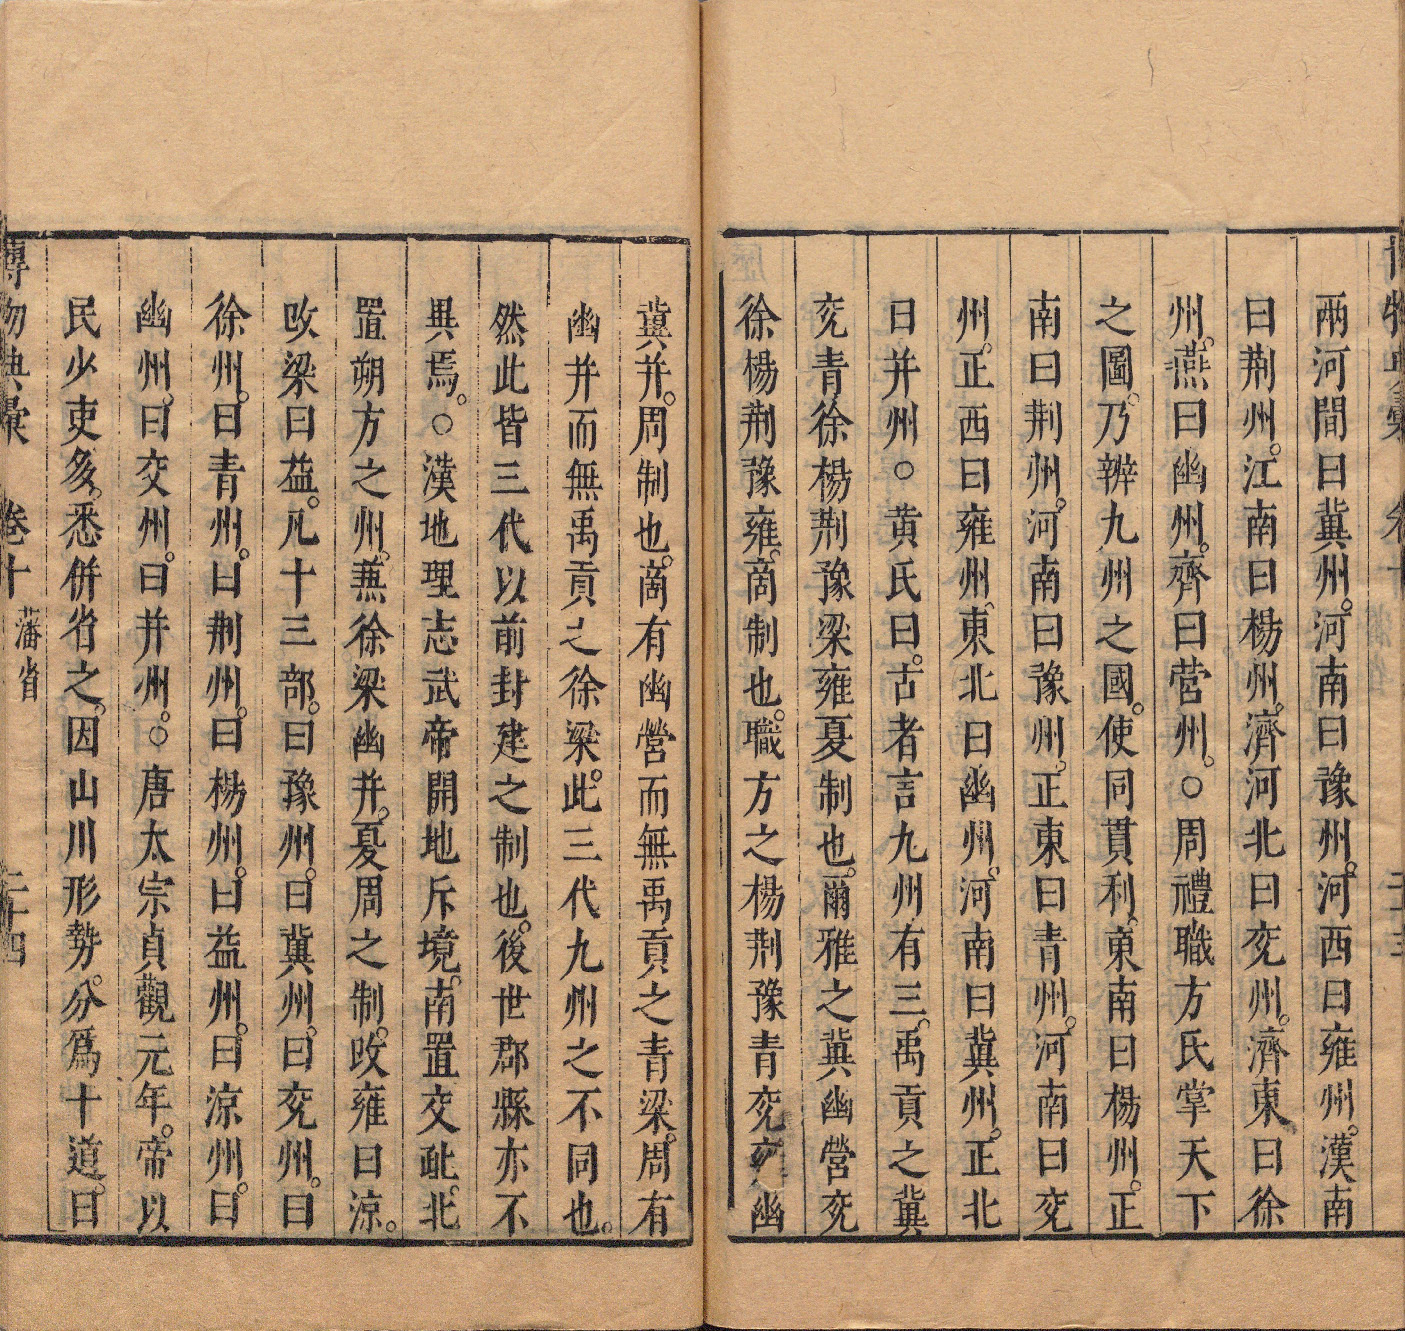 兩河間曰冀州。河南曰豫州。河西曰雍州。漢南
曰荆州。江南曰楊州。濟河北曰兗州。濟東曰徐
州。燕曰幽州。齊曰營州。○周禮職方氏掌天下
之圖。乃辨九州之國。使同貫利。東南曰楊州。正
南曰荆州。河南曰豫州。正東曰青州。河南曰兗
州。正西曰雍州。東北曰幽州。河南曰冀州。正北
曰并州○黄氏曰。古者言九州有三。禹貢之冀
兗青徐楊荆豫梁雍夏制也。爾雅之冀幽營兗
徐楊荆豫雍。商制也。職方之楊荆豫青兗雍幽
冀并。周制也。商有幽營而無禹貢之青梁。周有
幽并而無禹貢之徐梁。此三代九州之不同也。
然此皆三代以前封建之制也。後世郡縣亦不
異焉。○漢地理志武帝開地斥境。南置交趾。北
置朔方之州。兼徐梁幽并。夏周之制。改雍曰涼。
改梁曰益。凡十三部。曰豫州。曰冀州。曰兗州。曰
徐州。曰青州。曰荆州。曰楊州。曰益州。曰涼州。曰
幽州。曰交州。曰并州。○唐太宗貞觀元年。帝以
民少吏多。悉併省之。因山川形勢。分爲十道。曰
博物典彙 卷十 藩省 二十四